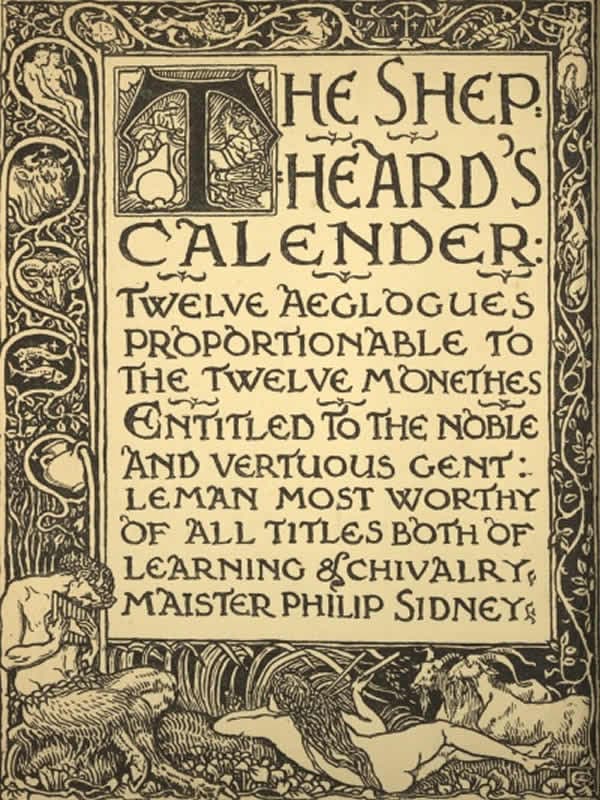 THE SHEP:
HEARD'S
CALENDER:
TWELVE AEGLOGUES
PROPORTIONABLE TO
THE TWELVE MONETHES
ENTITLED TO THE NOBLE
AND VERTUOUS GENT:
LEMAN MOST WORTHY
OF ALL TITLES BOTH OF
LEARNING & CHIVALRY,
MAISTER PHILIP SIDNEY;